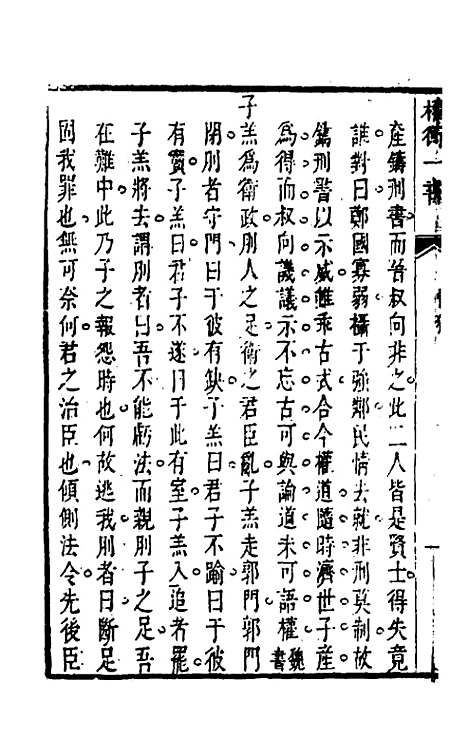 權衡一書
產鑄刑書而晉叔向非之此二人皆是賢士得失竟
誰對曰鄭國寡弱攝于強鄰民情去就非刑莫制故
鑄刑書以示威雖乖古式合今權道隨時濟世子產
為得而叔向譏議示不忘古可與論道未可語權魏書
子羔為衛政刖人之足衛之君臣亂子羔走郭門郭門
閉刖者守門曰于彼有缺子羔曰君子不踰曰于彼
有竇子羔曰君子不遂曰于此有室子羔入追者罷
子羔將去謂刖者曰吾不能虧法而親刖子之足吾
在難中此乃子之報怨時也何故逃我刖者曰斷足
固我罪也無可奈何君之治臣也傾側法令先後臣